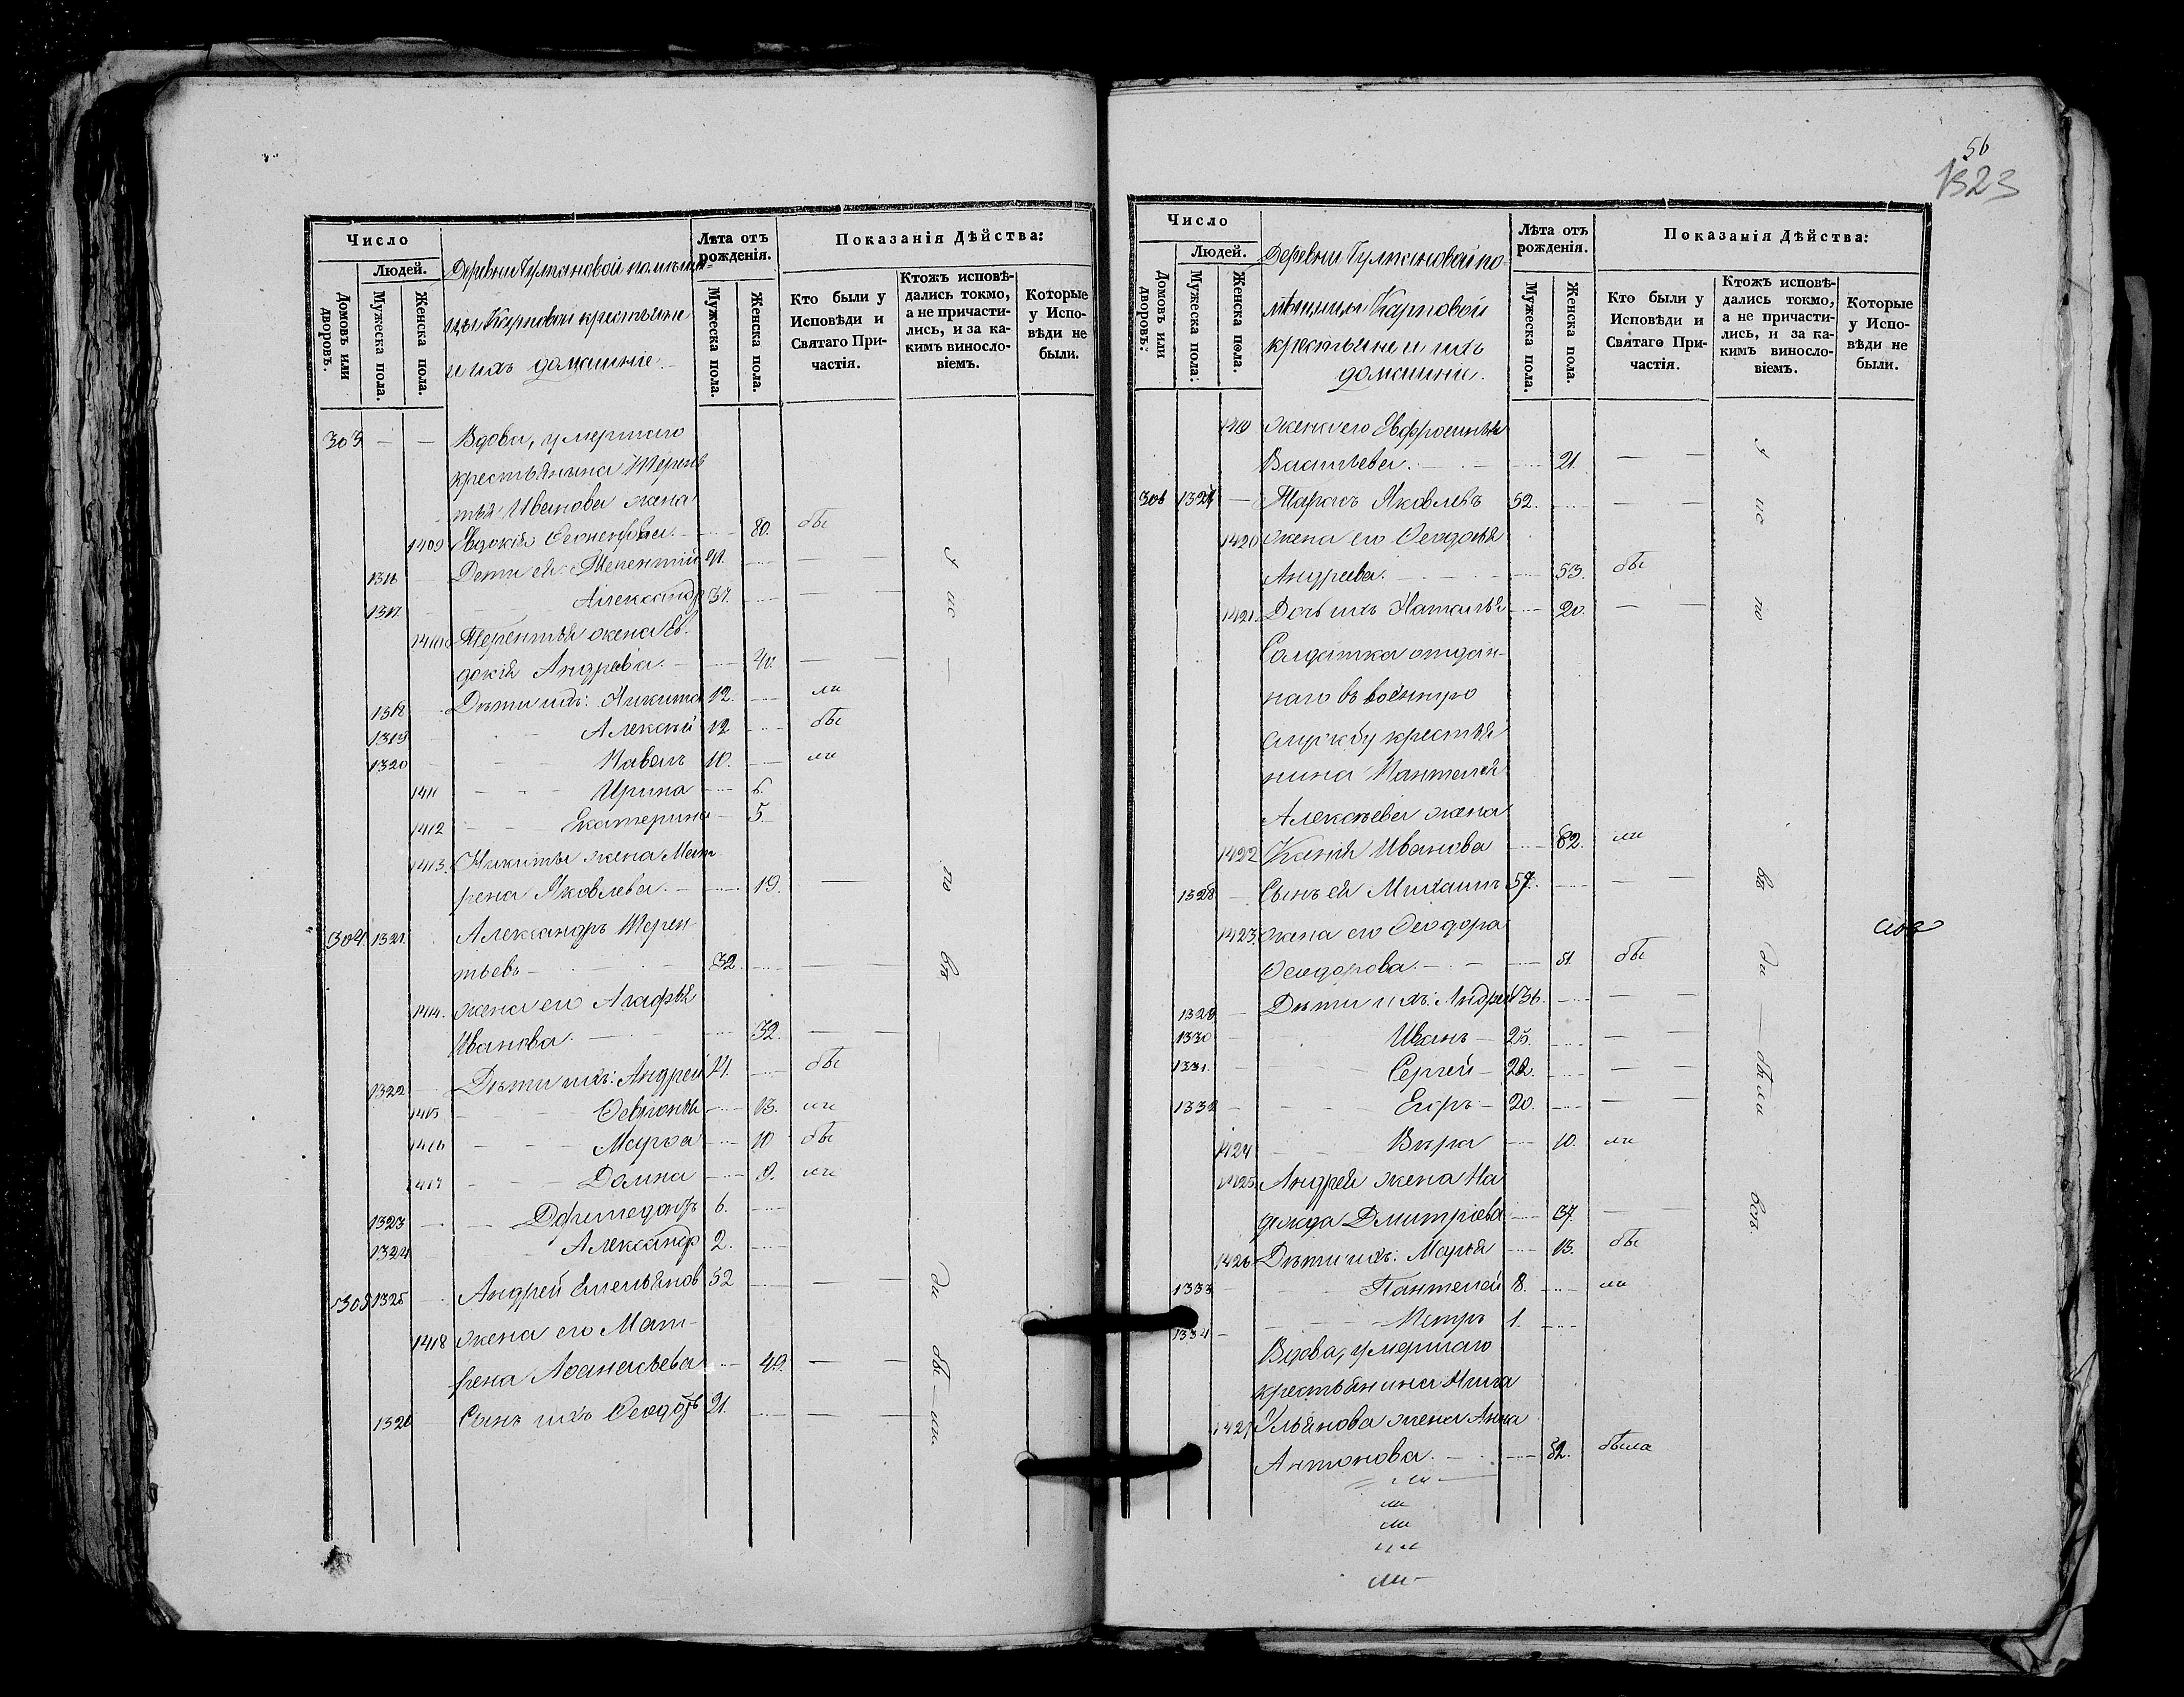 Число
Людей.
Домовъ или дворовъ.
Мужеска пола.
Женска пола.
Деревни Гулкановой помѣщи-
цы Карповой крестьяне
и ихъ домашніе.
Лѣта отъ рожденія.
Мужеска пола.
Женска пола.
Показанія Дѣйства:
Кто были у Исповѣди и Святаго Причастія.
Ктожъ исповѣдались токмо, а не причастились, и за какимъ винословіемъ.
Которые у Исповѣди не были.
303 — — Вдова, умершаго
крестьянина Терен
тья Иванова жена
1409 Евдокія 80. бы
1316 Дети ея: Терентій 41.
1317 Александр 37.
1410 Терентья жена Ев-
докія Андреева. 40.
1318 Дѣти ихъ: Никита 12. ли
1319 Алексѣй 12 бы
1320 Павелъ 10. ли
1411 Ирина 6.
1412 Екатерина 5.
1413. Никиты жена Мат
рена Яковлева. 19.
304. 1321. Александръ Терен-
тьевъ 32.
1414. жена его Агафья
Иванова. 32.
1322 Дѣти ихъ: Андрей 14. бы
1415 13. ли
1416 Марѳа 10 бы
1417 Домна 9. ли
1323 6.
1324 Александр 2.
305 1325 Андрей Емельянов 52
1418 жена его Мат-
рена Аѳанасьева 49.
1326 Сынъ ихъ Ѳеодотъ 21.
у ис — по вѣ — ди бы — ли.
56
1323
Число
Людей.
Домовъ или дворовъ.
Мужеска пола.
Женска пола.
Деревни Гулкановой по-
мѣщицы Карповой
крестьяне и ихъ
домашніе.
Лѣта отъ рожденія.
Мужеска пола.
Женска пола.
Показанія Дѣйства:
Кто были у Исповѣди и Святаго Причастія.
Ктожъ исповѣдались токмо, а не причастились, и за какимъ винословіемъ.
Которые у Исповѣди не были.
1419 жена его Евфросинья
Васильева. 21.
306 1327 — Тарасъ Яковлевъ 52.
1420 жена его Ѳеодосья
Андреева. 53. бы
1421. Дочь ихъ Наталья 20.
Солдатка отдан-
наго въ военную
службу крестья
нина Пантелея
Алексѣева жена
1422 Ксенія Иванова 82. ли
1328 Сынъ ея Михаилъ 57.
1423. жена его Ѳеодора
Ѳеодорова. 51. бы
1329 Дѣти ихъ: Андрей 36.
1330 Иванъ 25.
1331. Сергей 22.
1332 Егоръ 20.
1424 Вѣра 10. ли
1425 Андрея жена На
дежда Дмитрieва 37.
1426 Дѣти ихъ: Марья 13. бы
1333 Пантелей 8. ли
1334 Петръ 1.
Вдова, умершаго
крестьянина
1427 Ульянова жена Анна
Антонова. 52. была
ли
ли
ли
ли
ли
у ис по вѣ ди — были всѣ.